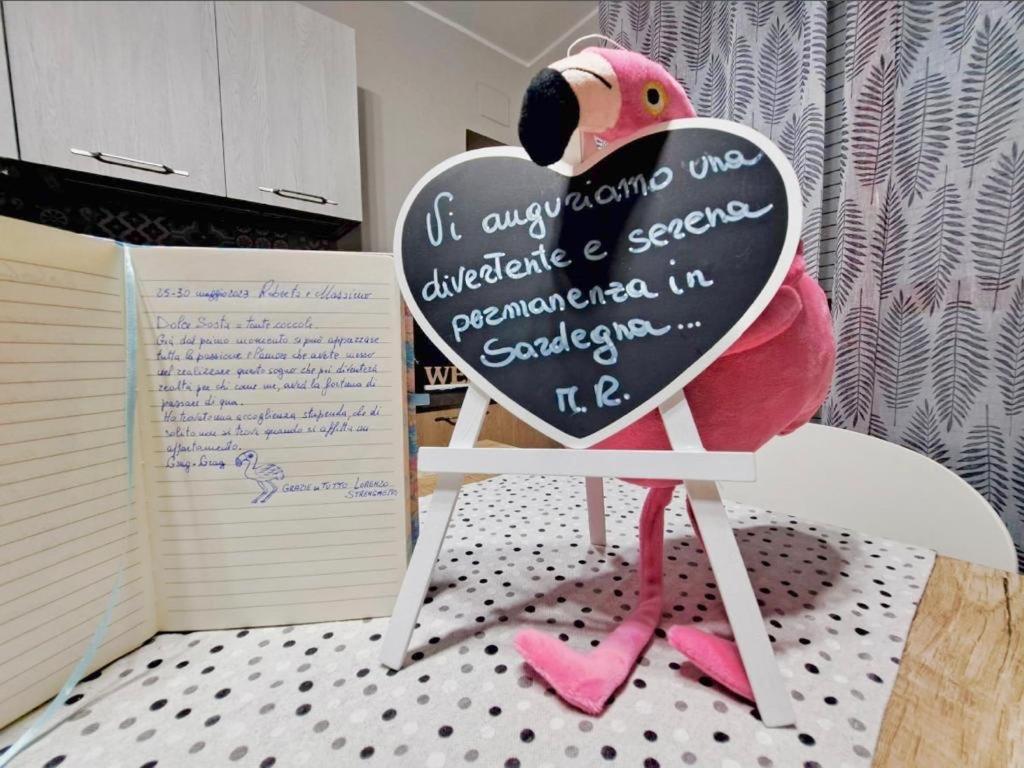 25-30 maggio 2023 Roberta e Massimo
Dolce Sosta = tante coccole.
Già dal primo momento si può apprezzare
tutta la passione e l'amore che avete messo
nel realizzare questo sogno che poi diventerà
realtà per chi come me, avrà la fortuna di
passare di qua.
Ho trovato una accoglienza stupenda, che di
solito non si trova quando si affitta un
appartamento.
GRAZIE di TUTTO LORENZO
Vi auguriamo una
divertente e serena
permanenza in
Sardegna...
M. R.
WE